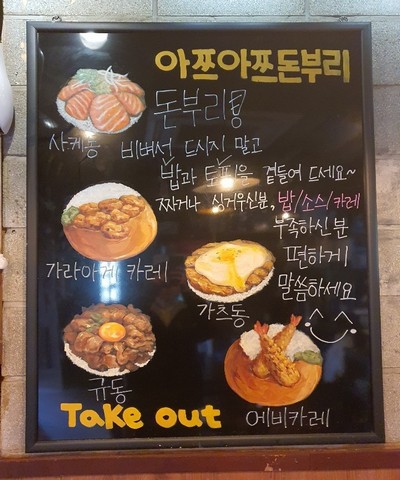 아쯔아쯔돈부리
돈부리!
사케동
비벼서 드시지 말고
밥과 토핑을 곁들여 드세요~
짜거나 싱거우신분, 밥/소스/카레
부족하신분
편하게
말씀하세요
가라아게 카레
가츠동
규동
에비카레
Take out